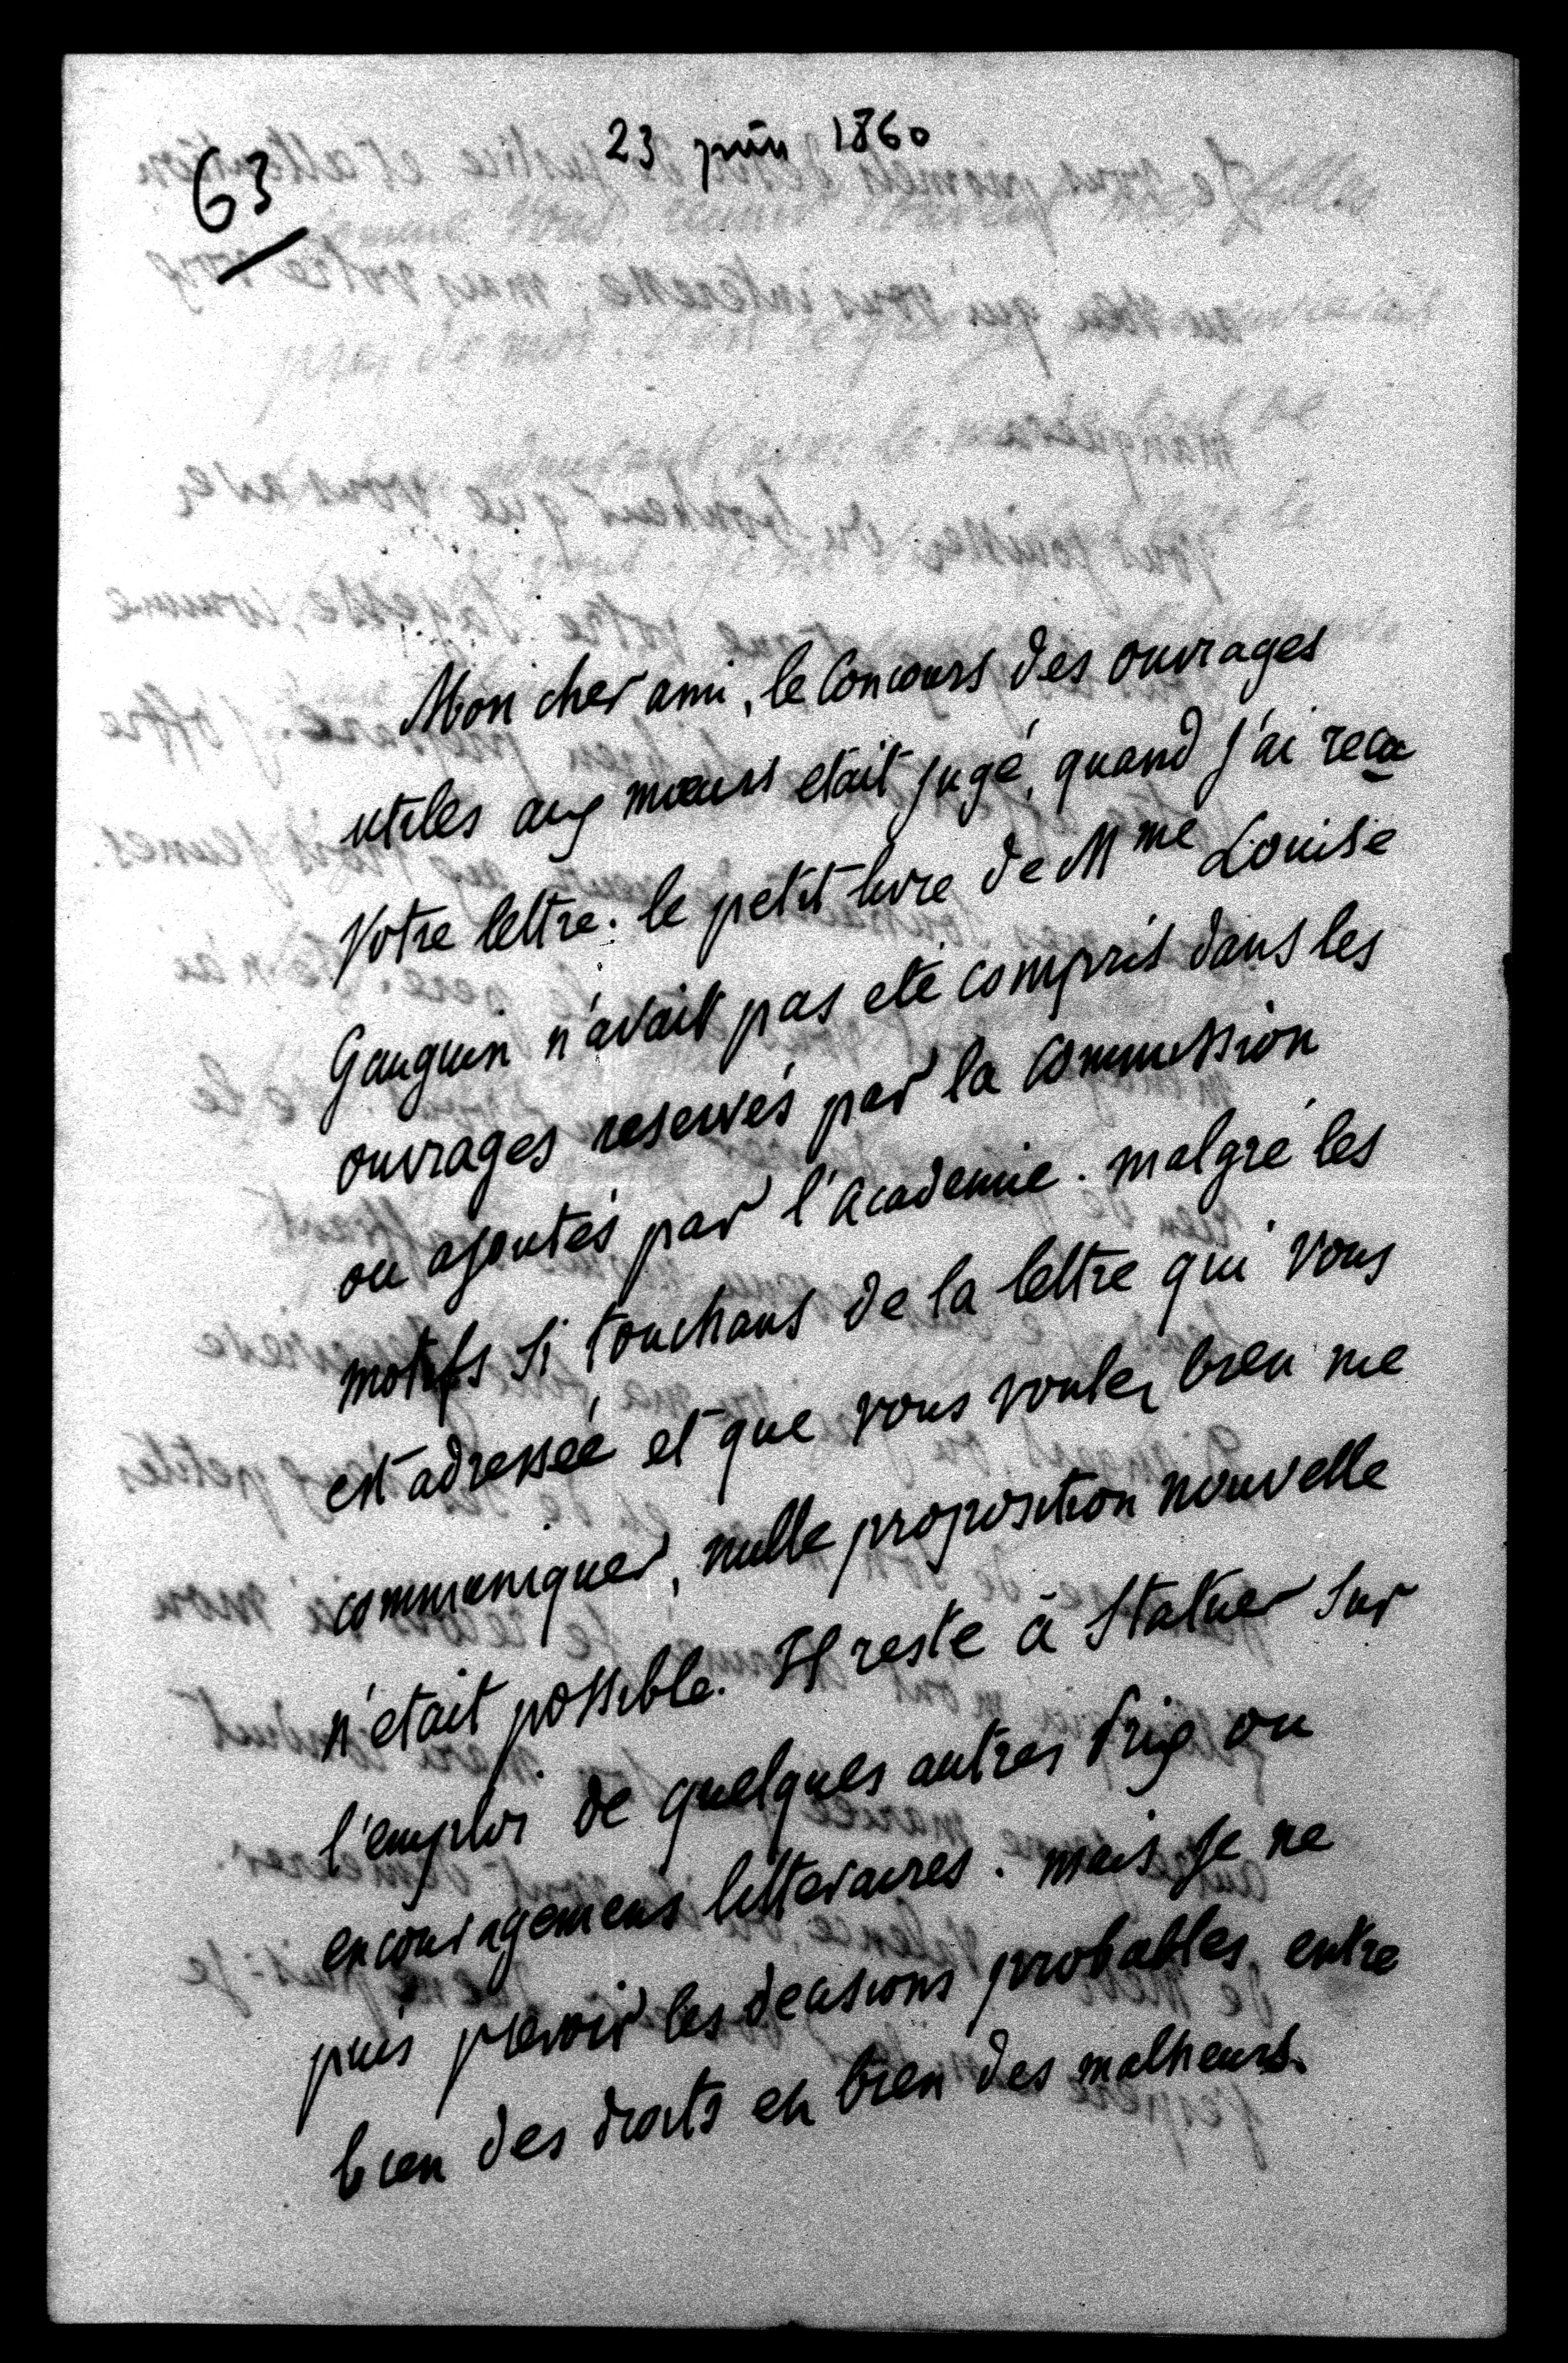 23 juin 1860
63
Mon cher ami, le Concours des ouvrages
utiles aux mœurs etait jugé, quand j'ai reçu
votre lettre. le petit livre de Mme Louise
Gauguin n'avait pas eté compris dans les
ouvrages reservés par la Commission
ou ajoutés par l'academie. malgré les
motifs si touchans de la lettre qui vous
est adressée et que vous voulez bien me
communiquer, nulle proposition nouvelle
n'etait possible. Il reste à statuer sur
l'emploi de quelques autres Prix ou
encouragemens litteraires. mais je ne
puis prevoir les decisions probables, entre
bien des droits et bien des malheurs.